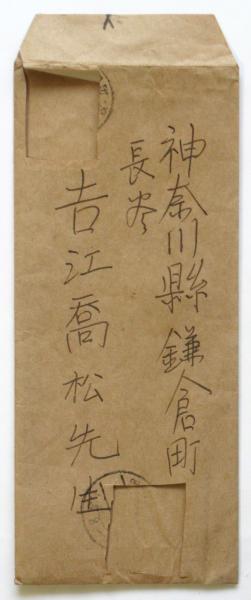 神奈川縣鎌倉町
長谷
吉江喬松先生